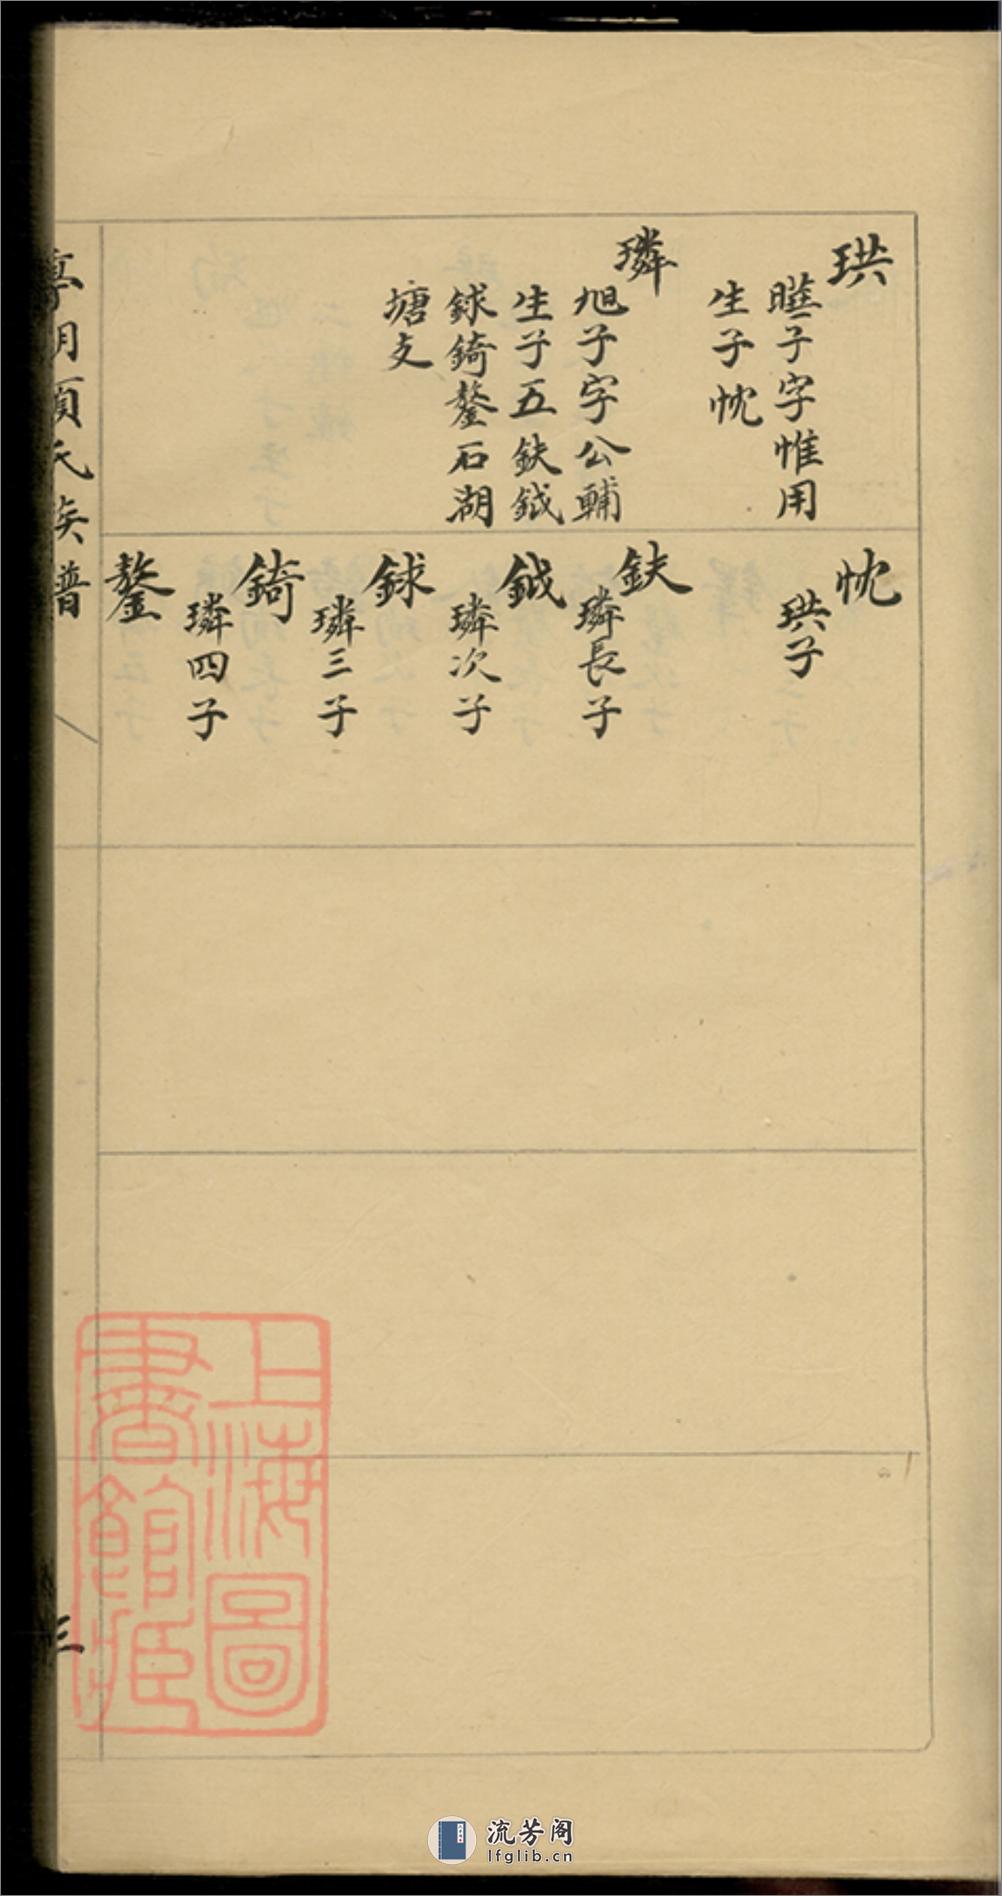 珙
曄子字惟用
生子忱
璘
旭子字公輔
生子五鈇鉞
銶錡鏊石湖
塘支
忱
珙子
鈇
璘長子
鉞
璘次子
銶
璘三子
錡
璘四子
鏊
亭明頊氏族譜
三
上海圖
書館藏
流芳阁
lfglib.cn